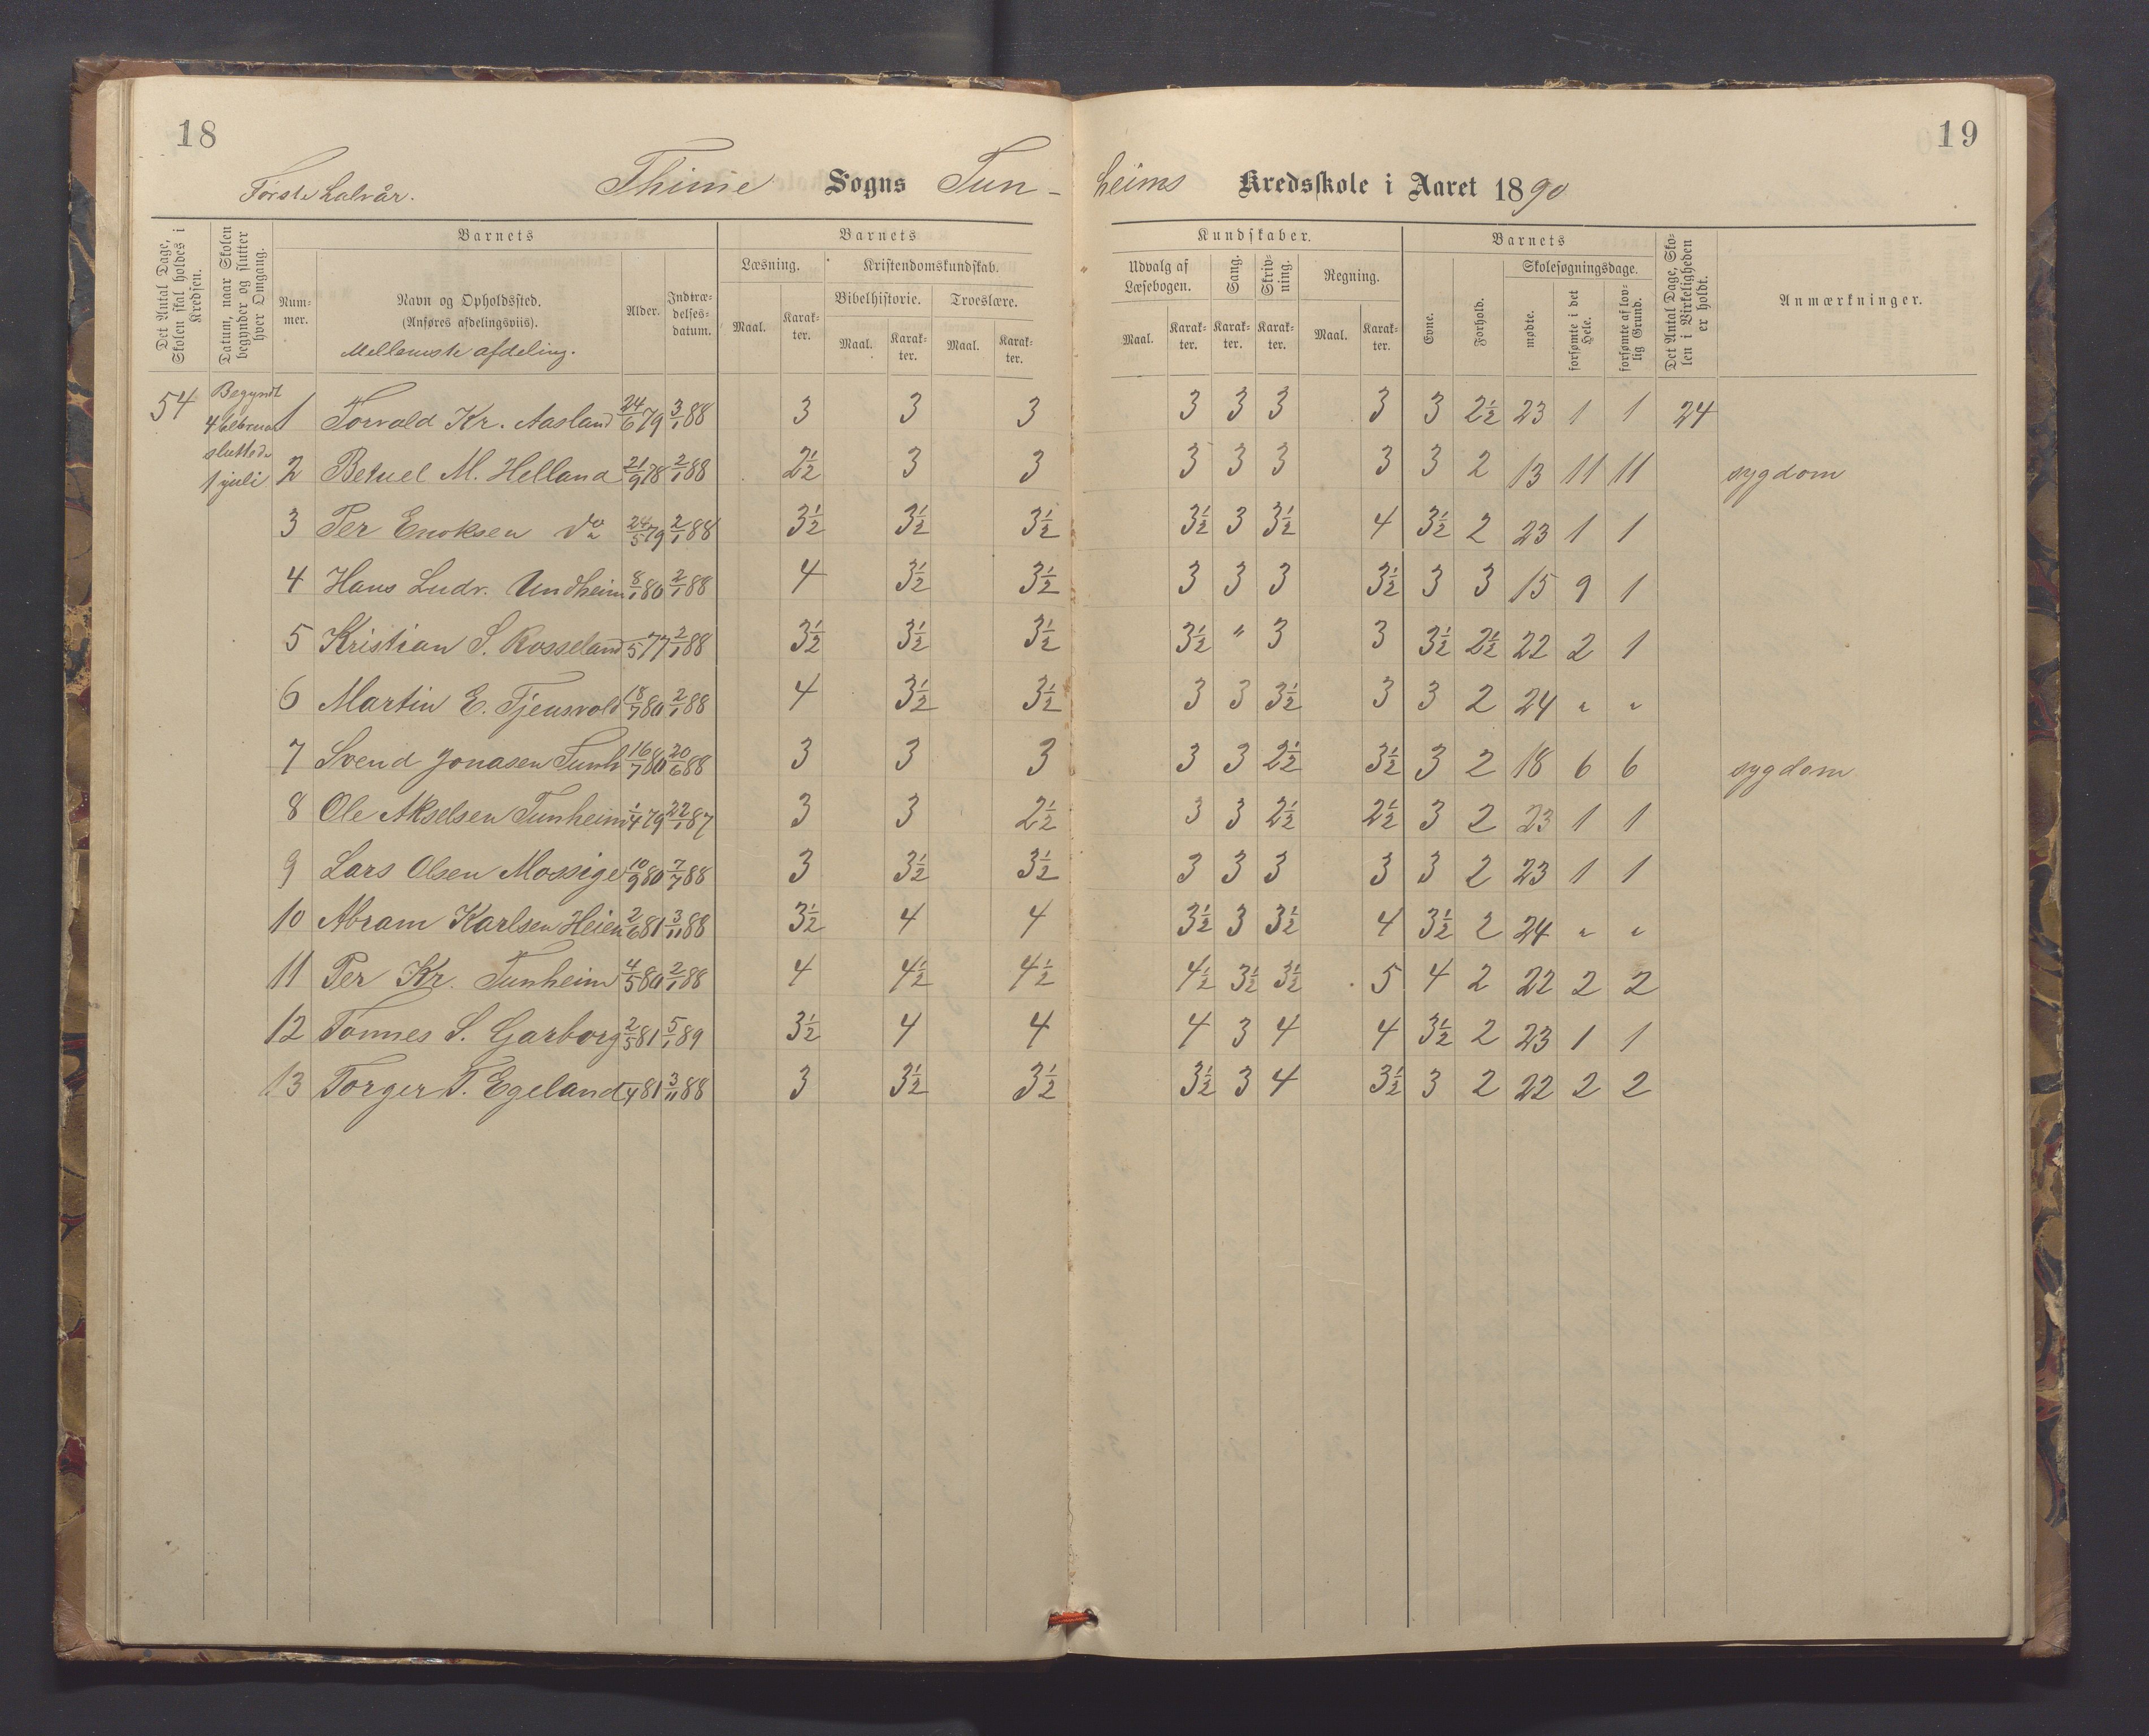 18
19
Første halvår.
Thime Sogns Tun-heims Kredsskole i Aaret 1890
Det Antal Dage, Skolen skal holdes i Kredsen.
Datum, naar Skolen begynder og slutter hver Omgang.
Barnets
Nummer.
Navn og Opholdssted.
(Anføres afdelingsviis).
Mellemste afdeling.
Alder.
Indtrædelsesdatum.
Barnets Kundskaber.
Læsning.
Maal. Karakter.
Kristendomskundskab.
Bibelhistorie.
Maal. Karakter.
Troeslære.
Maal. Karakter.
Udvalg af Læsebogen.
Maal. Karakter.
Sang.
Karakter.
Skrivning.
Karakter.
Regning.
Maal. Karakter.
Barnets
Evne.
Forhold.
Skolesøgningsdage.
mødte.
forsømte i det Hele.
forsømte af lovlig Grund.
Det Antal Dage, Skolen i Virkeligheden er holdt.
Anmærkninger.
54
Begyndt
4 februar
sluttede
1 juli
1 Torvald Kr. Aasland 24/6 79 3/1 88 3 3 3 3 3 3 3 3 2½ 23 1 1 24
2 Betuel M. Helland 21/9 78 2/1 88 2½ 3 3 3 3 3 3 3 2 13 11 11 sygdom
3 Per Enoksen do 24/5 79 2/1 88 3½ 3½ 3½ 3½ 3 3½ 4 3½ 2 23 1 1
4 Hans Ludv. Undheim 8/1 80 2/1 88 4 3½ 3½ 3 3 3 3½ 3 3 15 9 1
5 Kristian S. Rosseland /5 77 2/1 88 3½ 3½ 3½ 3½ " 3 3 3½ 2½ 22 2 1
6 Martin E. Tjensvold 18/7 80 2/1 88 4 3½ 3½ 3 3 3½ 3 3 2 24 " "
7 Svend Jonasen Tunh 16/7 80 20/6 88 3 3 3 3 3 2½ 3½ 3 2 18 6 6 sygdom
8 Ole Akselsen Tunheim 1/4 79 22/1 87 3 3 2½ 3 3 2½ 2½ 3 2 23 1 1
9 Lars Olsen Mossige 10/9 80 7/7 88 3 3½ 3½ 3 3 3 3 3 2 23 1 1
10 Abram Karlsen Heien 2/6 81 3/11 88 3½ 4 4 3½ 3 3½ 4 3½ 2 24 " "
11 Per Kr. Tunheim 4/5 80 2/1 88 4 4½ 4½ 4½ 3½ 3½ 5 4 2 22 2 2
12 Tønnes S. Garborg 2/5 81 5/1 89 3½ 4 4 4 3 4 4 3½ 2 23 1 1
13 Torger T. Egeland /4 81 3/11 88 3 3½ 3½ 3½ 3 4 3½ 3 2 22 2 2